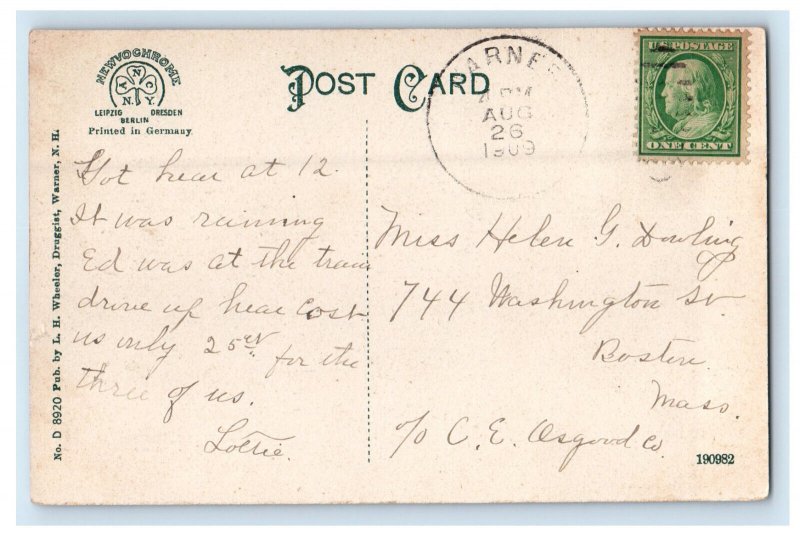 NEWVOCHROME
A N C
N.Y.
LEIPZIG DRESDEN
BERLIN
Printed in Germany
POST CARD
ARNE
PM
AUG
26
1909
U.S. POSTAGE
ONE CENT
No. D 8920 Pub. by L. H. Wheeler, Druggist, Warner, N. H.
Got hear at 12.
It was raining
Ed was at the train
drive up hear cost
us only 25 for the
three of us.
Lottie.
Miss Helen G. Dowling
744 Washington St.
Boston
Mass.
c/o C. E. Osgood Co
190982